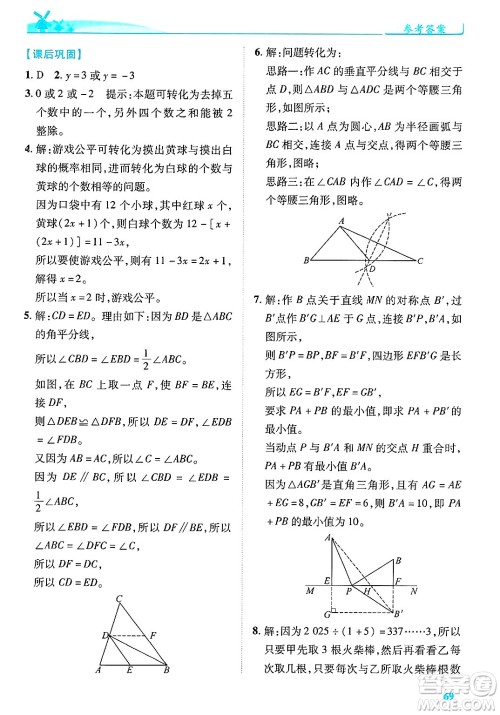 参考答案
【课后巩固】
1. D  2. y=3 或 y=-3
3. 0 或 2 或 -2  提示：本题可转化为去掉五
个数中的一个数，另外四个数之和能被 2
整除。
4. 解：游戏公平可转化为摸出黄球与摸出白
球的概率相等，进而转化为白球的个数与
黄球的个数相等的问题。
因为口袋中有 12 个小球，其中红球 x 个，
黄球(2x+1)个，则白球个数为 12-[x+
(2x+1)]=11-3x，
所以要使游戏公平，则有 11-3x=2x+1，
解得 x=2。
所以当 x=2 时，游戏公平。
5. 解：CD=ED。理由如下：因为 BD 是△ABC
的角平分线，
所以∠CBD=∠EBD=1/2∠ABC。
如图，在 BC 上取一点 F，使 BF=BE，连
接 DF，
则△DEB≌△DFB，所以 DE=DF，∠EDB
=∠FDB。
又因为 AB=AC，所以∠ABC=∠C。
又因为 DE∥BC，所以∠EDB=∠CBD=
1/2∠ABC，
所以∠EDF=∠C，所以 DF∥AB，所以
∠ABC=∠DFC=∠C，所以 CD=DF，
所以 CD=ED。
A
D
F
E
B
6. 解：问题转化为：
思路一：作 AC 的垂直平分线与 BC 相交于
点 D，则△ABD 与△ADC 是两个等腰三角
形，如图所示。
思路二：以 AC 的中点为圆心，为半径画弧与
BC 相交，也可得到两个等腰三角
形，图略。
思路三：作∠CAB 内∠CAD=∠C，也可得两
个等腰三角形，图略。
A
B
D
C
7. 解：作 B 点关于直线 MN 的对称点 B′，如
图所示，
则 B′P=BP，四边形 EFB′G 是长方形，
所以 B′F=BF=EG，GB′=EF。
要求 PA+PB 的最小值，即求 PA+PB′的
最小值。
当动点 P 与 B′A 和 MN 的交点 H 重合时，
PA+PB 有最小值 B′A。
因为△AGB′是直角三角形，所以 AE+
EG=8，GB′=EF=6，则 B′A=10，所以 PA
+PB 的最小值为 10。
A
B
M
E
P
H
F
N
G
B′
8. 解：因为 2 025÷(1+5)=337……3，所以
只要甲先取 3 根火柴棒，然后再看乙每
次取几根，甲每次与乙所取火柴棒根数
69
答案圈
MXQE.COM